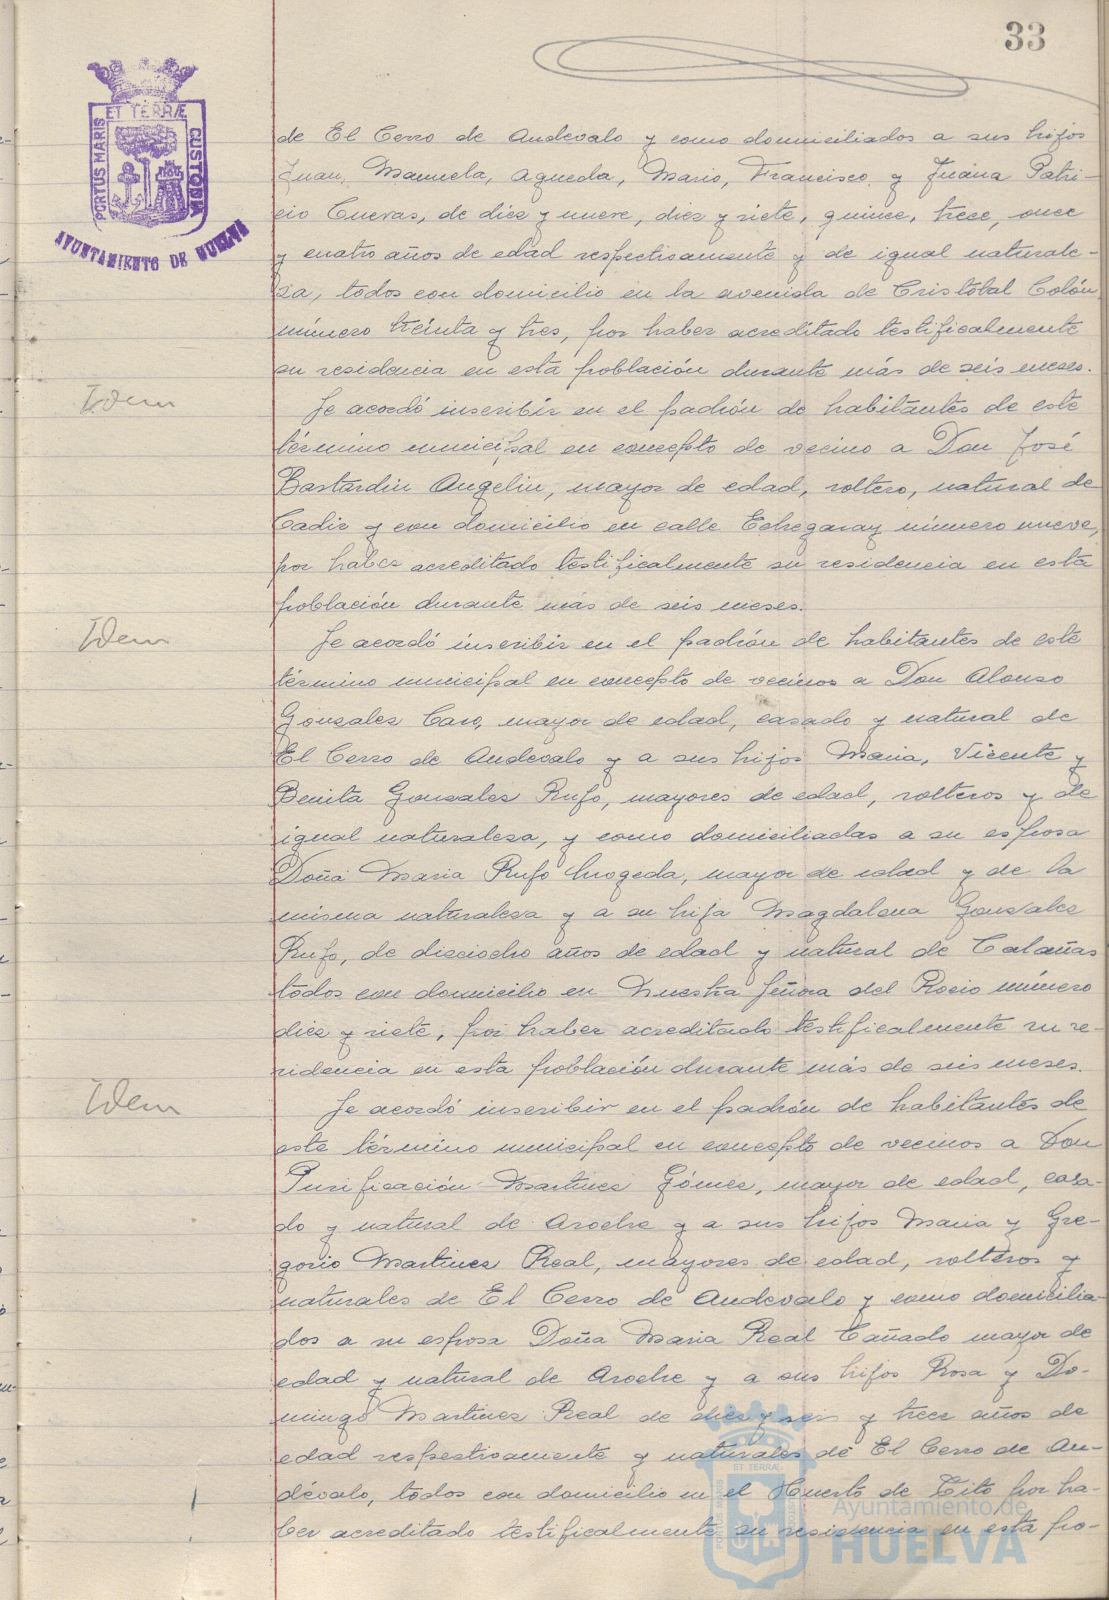 33
PORTUS MARIS ET TERRÆ CUSTODIA
AYUNTAMIENTO DE HUELVA
de El Cerro de Andevalo y como domiciliados a sus hijos
Juan, Manuela, Agueda, Mario, Francisco y Juana Patri-
cio Cuevas, de diez y nueve, diez y siete, quince, trece, once
y cuatro años de edad respectivamente y de igual naturale-
za, todos con domicilio en la avenida de Cristóbal Colón
número treinta y tres, por haber acreditado testificalmente
su residencia en esta población durante más de seis meses.
Idem
Se acordó inscribir en el padrón de habitantes de este
término municipal en concepto de vecino a Don José
Bastardin Angelin, mayor de edad, soltero, natural de
Cadiz y con domicilio en calle Echegaray número nueve,
por haber acreditado testificalmente su residencia en esta
población durante más de seis meses.
Idem
Se acordó inscribir en el padrón de habitantes de este
término municipal en concepto de vecinos a Don Alonso
Gonzalez Caro, mayor de edad, casado y natural de
El Cerro de Andevalo y a sus hijos Maria, Vicente y
Benita Gonzalez Rufo, mayores de edad, solteros y de
igual naturaleza, y como domiciliadas a su esposa
Doña Maria Rufo, mayor de edad y de la
misma naturaleza y a su hija Magdalena Gonzalez
Rufo, de dieciocho años de edad y natural de Calañas
todos con domicilio en Nuestra Señora del Rocio número
diez y siete, por haber acreditado testificalmente su re-
sidencia en esta población durante más de seis meses.
Idem
Se acordó inscribir en el padrón de habitantes de
este término municipal en concepto de vecinos a Don
Purificación Martinez Gómez, mayor de edad, casa-
do y natural de Aroche y a sus hijos Maria y Gre-
gorio Martinez Real, mayores de edad, solteros y
naturales de El Cerro de Andevalo y como domicilia-
dos a su esposa Doña Maria Real Cañado mayor de
edad y natural de Aroche y a sus hijos Rosa y Do-
mingo Martinez Real de diez y seis y trece años de
edad respectivamente y naturales de El Cerro de An-
dévalo, todos con domicilio en el Huerto de Tito por ha-
ber acreditado testificalmente su residencia en esta po-
Ayuntamiento de
HUELVA